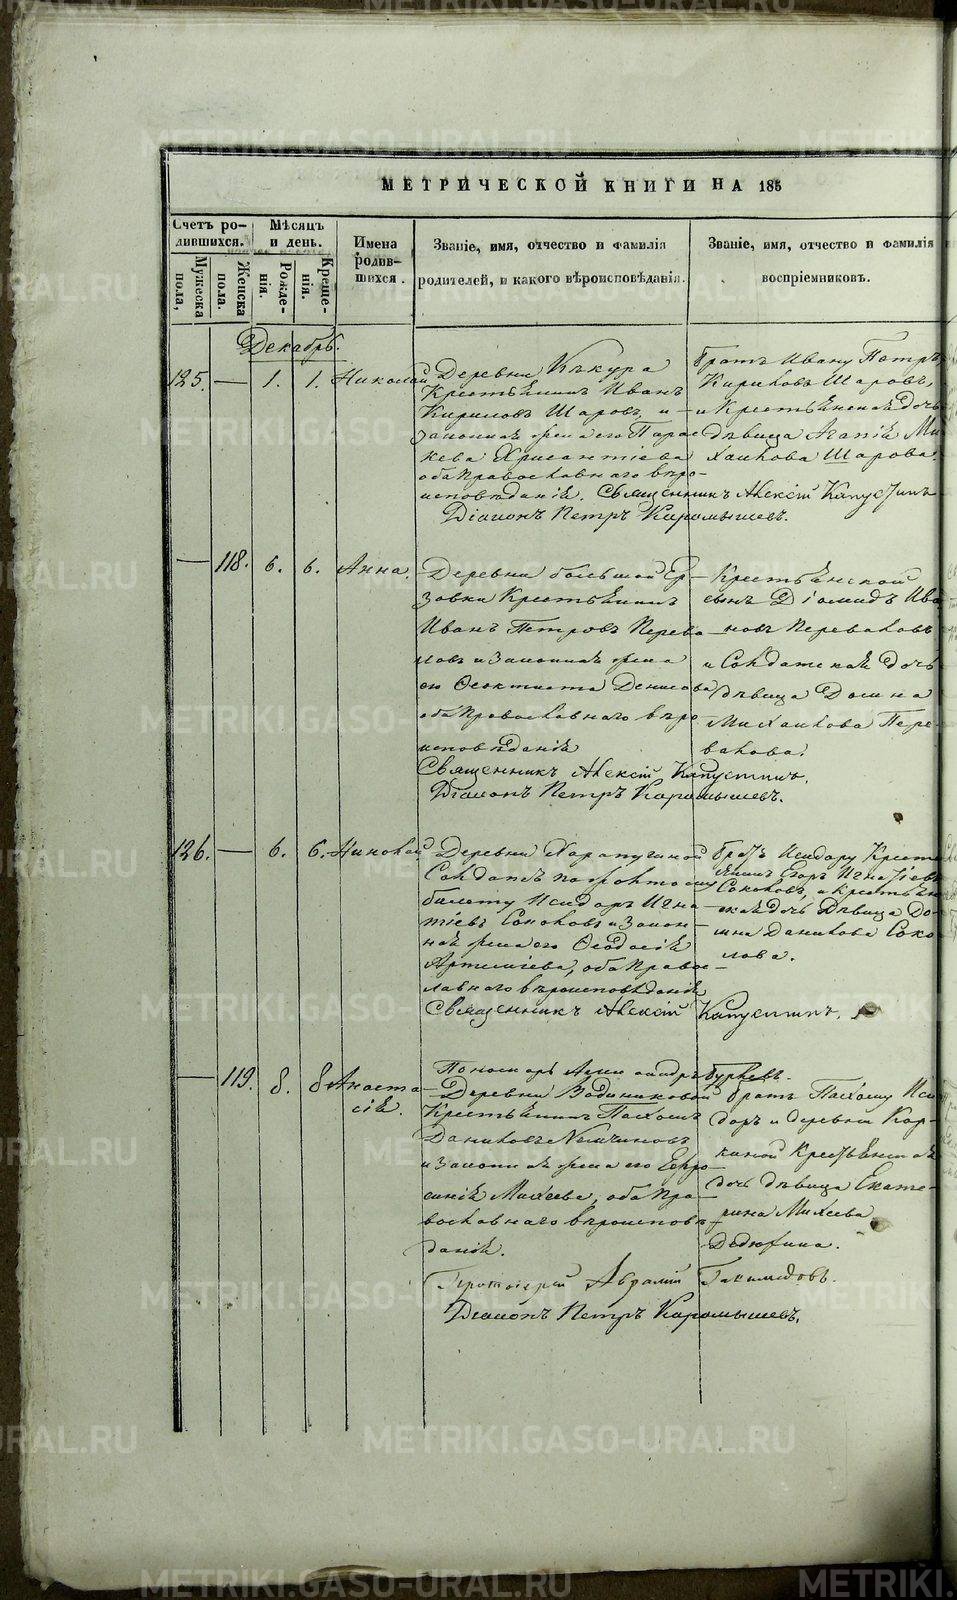 МЕТРИЧЕСКОЙ КНИГИ НА 185
Счетъ ро-
дившихся.
Мужеска
пола,
Женска
пола.
Мѣсяцъ
и день.
Рожде-
нія.
Креще-
нія.
Имена
родив-
шихся.
Званіе, имя, отчество и фамилія
родителей, и какого вѣроисповѣданія.
Званіе, имя, отчество и фамилія
воспріемниковъ.
Декабрь.
125. — 1. 1. Николай
Деревни
Крестьянинъ Иванъ
Кириловъ Шаровъ, и
законная жена его Парас
кева Хрисантіева
оба православнаго вѣро-
исповѣданія. Священникъ Алексій Капустинъ
Діаконъ Петръ Карамышевъ.
братъ Ивану Петръ
Кириловъ Шаровъ,
и Крестьянская дочь
дѣвица Агапія Ми
хаилова Шарова.
— 118. 6. 6. Анна.
Деревни большой Ер-
зовки Крестьянинъ
Иванъ Петровъ Перева
ловъ и законная жена
его Феоктиста Денисова
оба православнаго вѣро
исповѣданія
Священникъ Алексій Капустинъ.
Діаконъ Петръ Карамышевъ.
Крестьянской
сынъ Діомидъ Ива
новъ Переваловъ
и Солдатская дочь
дѣвица Домна
Михаилова Пере-
валова.
126. — 6. 6. Николай
Деревни
Солдатъ
билету Исидоръ Игна
тіевъ Соколовъ и закон-
ная жена его Феодосія
Артеміева, оба право-
славнаго вѣроисповѣданія
Священникъ Алексій Капустинъ.
братъ Исидору Кресть
янинъ Егоръ Игнатіевъ
Соколовъ, и крестьян
ская дочь дѣвица До-
мна Данилова Соко
лова.
— 119. 8. 8 Анаста
сія.
Пономарь Александръ
Деревни Водениковой
Крестьянинъ Пахомъ
Даниловъ
и законная жена его Евфро
синія Михеева, оба пра-
вославнаго вѣроисповѣ-
данія.
Протоіерей
Діаконъ Петръ Карамышевъ.
братъ Пахому Иси
доръ и деревни
Крестьянская
дочь дѣвица Екате-
рина Михеева
Дедюхина.
METRIKI.GASO-URAL.RU